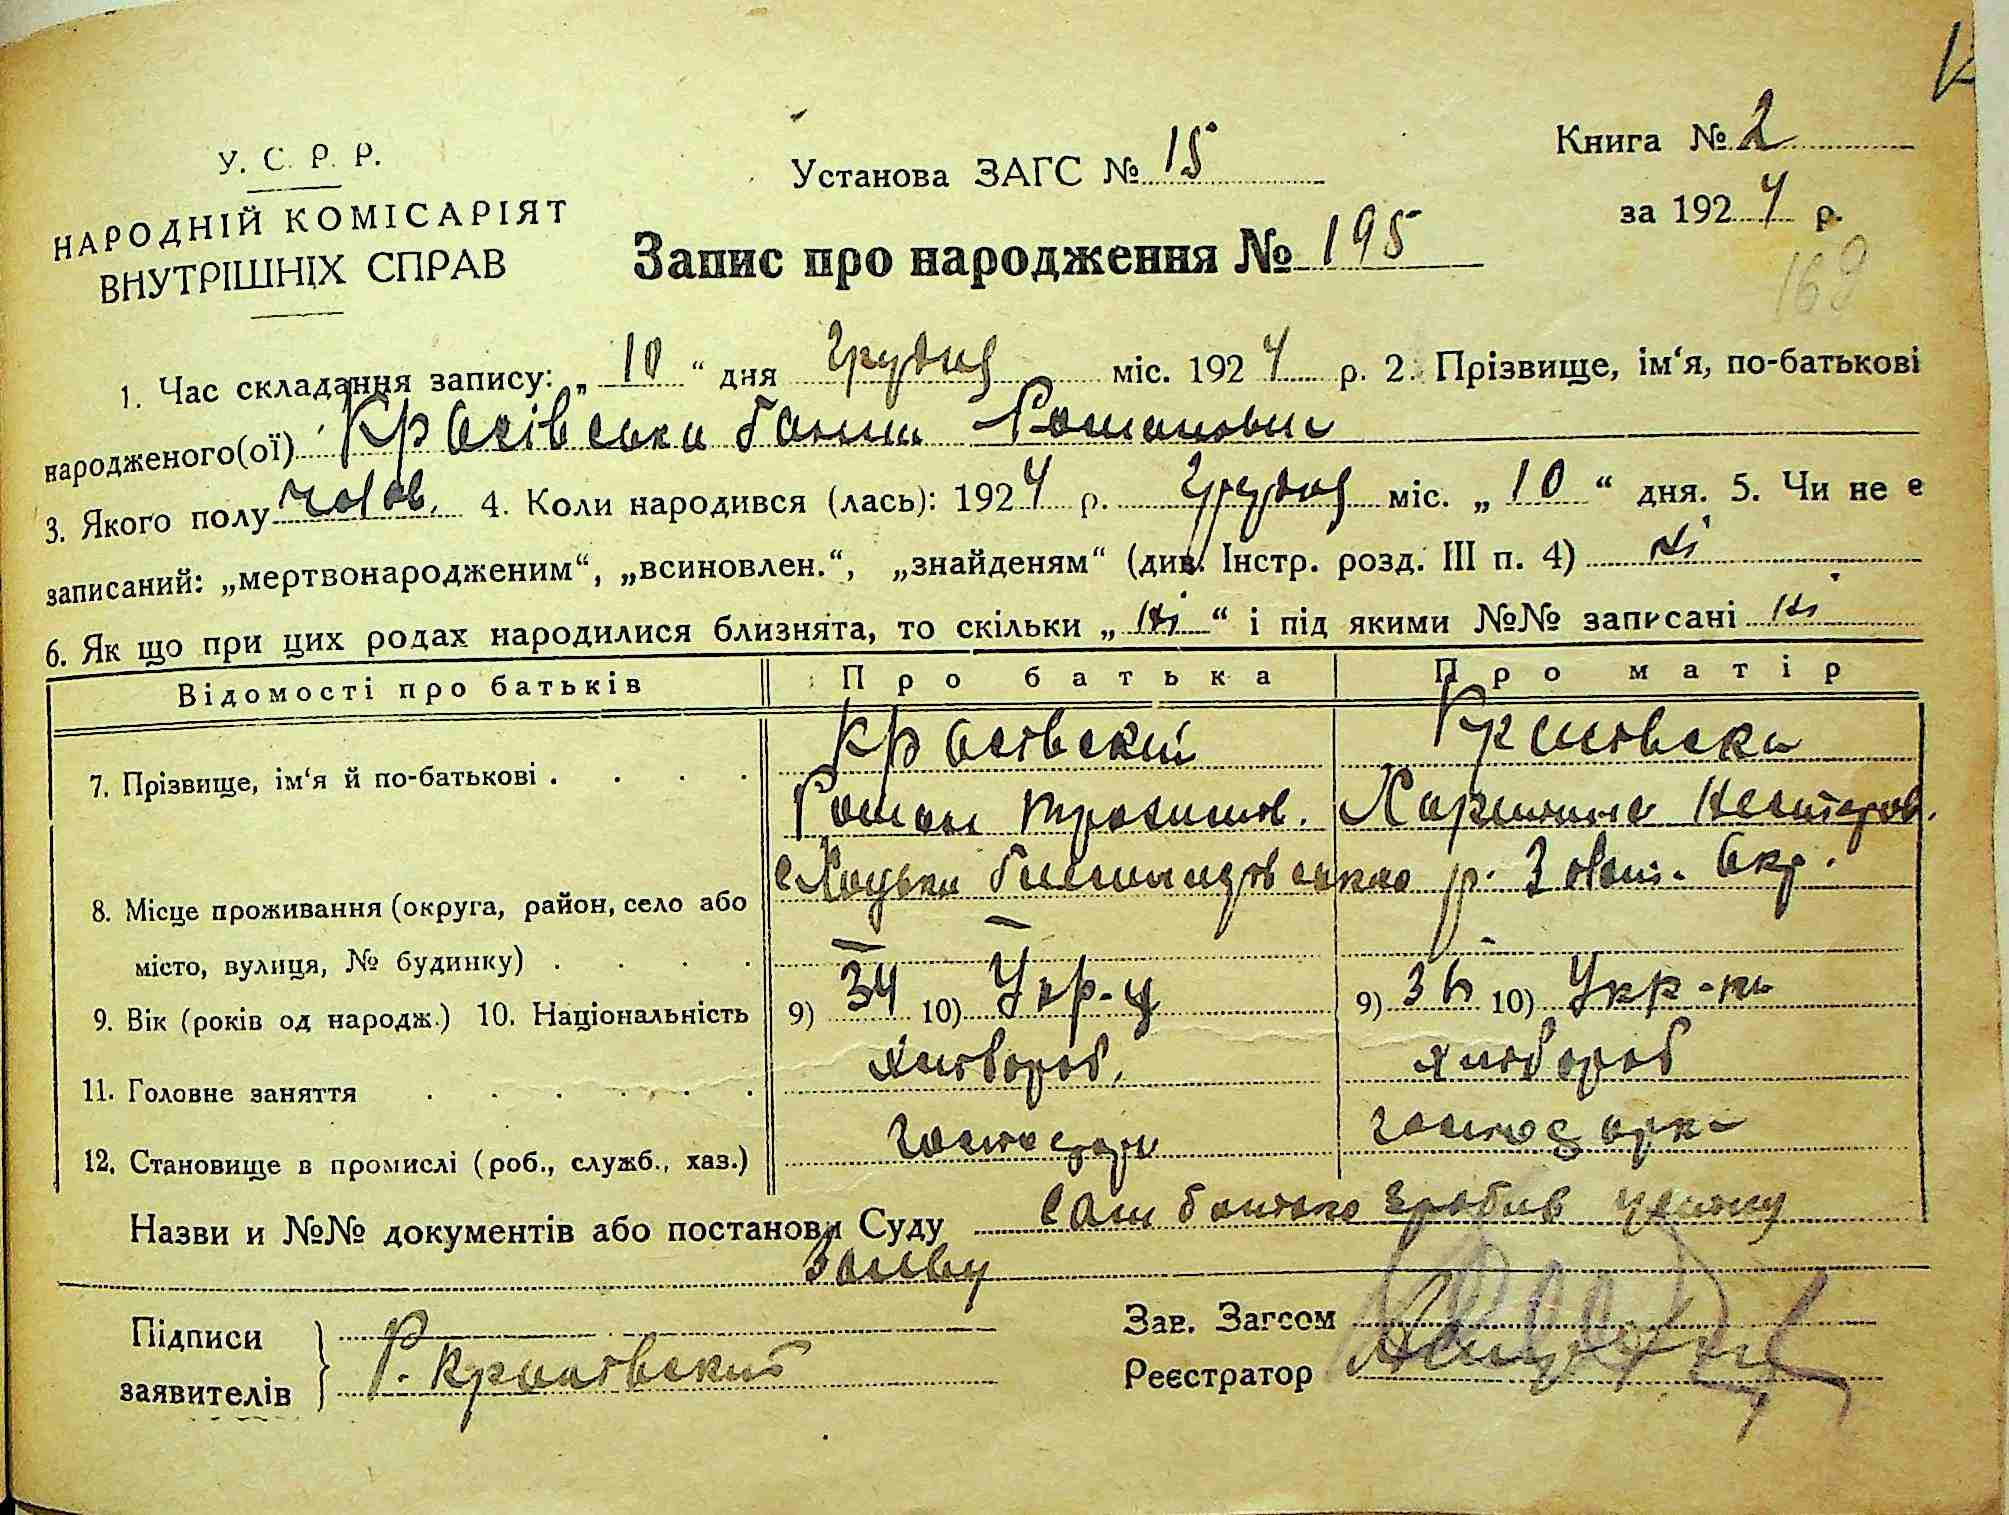 У. С. Р. Р.
НАРОДНІЙ КОМІСАРІЯТ
ВНУТРІШНІХ СПРАВ
Установа ЗАГС № 15
Книга № 2
за 1924 р.
Запис про народження № 195
169
1. Час складання запису: „ 10 “ дня Грудня міс. 1924 р. 2. Прізвище, ім‘я, по-батькові
народженого(ої) Романович
3. Якого полу чолов. 4. Коли народився (лась): 1924 р. Грудня міс. „ 10 “ дня. 5. Чи не є
записаний: „мертвонародженим“, „всиновлен.“, „знайденям“ (див. Інстр. розд. III п. 4) ні
6. Як що при цих родах народилися близнята, то скільки „ ні “ і під якими №№ записані ні
Відомості про батьків Про батька Про матір
7. Прізвище, ім‘я й по-батькові . . . .
Роман Трохимов. Нестеров.
8. Місце проживання (округа, район, село або
с. Хоцьки р. Золот. Окр.
місто, вулиця, № будинку) . . . .
9. Вік (років од народж.) 10. Національність 9) 34 10) Укр-ц 9) 36 10) Укр-ка
11. Головне заняття . . . . . . хлібороб. хлібороб
12. Становище в промислі (роб., служб., хаз.) господар господарка
Назви и №№ документів або постанови Суду Сам батько зробив усну
заяву
Підписи
заявителів
Р.
Зав. Загсом
Реєстратор